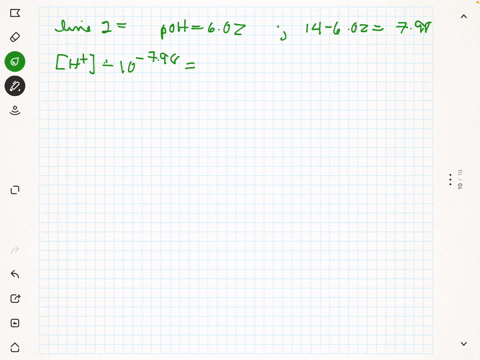 line 2 = pOH = 6.02 ; 14-6.02 = 7.98
[H+] = 10^-7.98 =
10 / 10